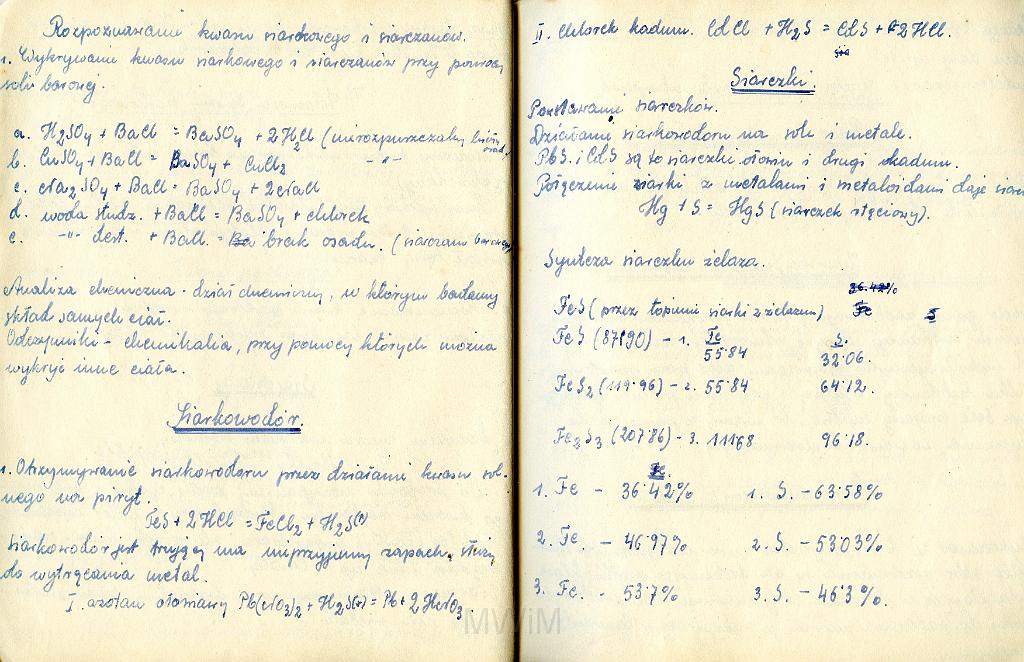 Rozpoznawanie kwasu siarkowego i siarczanów.
1. Wykrywanie kwasu siarkowego i siarczanów przy pomocy
soli barowej.
a. H2SO4 + BaCl = BaSO4 + 2HCl (nierozpuszczalny biały osad.
b. CuSO4 + BaCl = BaSO4 + CuCl2 -"-
c. Na2SO4 + BaCl = BaSO4 + 2NaCl
d. woda studz. + BaCl = BaSO4 + chlorek
e. -"- dest. + BaCl. = Ba brak osadu. (siarczanu barowego)
Analiza chemiczna - dział chemiczny, w którym badamy
skład samych ciał.
Odczynniki - chemikalia, przy pomocy których można
wykryć inne ciała.
Siarkowodór.
1. Otrzymywanie siarkowodoru przez działanie kwasu sol-
nego na piryt.
FeS + 2HCl = FeCl2 + H2S(↑)
Siarkowodór jest trującą ma nieprzyjemny zapach, służy
do wytrącania metal.
I. azotan ołowiawy Pb(NO3)2 + H2S(↑) = Pb + 2HNO3
II. Chlorek kadum. CdCl + H2S = CdS + 2HCl.
Siarczki.
Powstawanie siarczków.
Działanie siarkowodoru na sole i metale.
PbS i CdS są to siarczki ołowiu i drugi kadum.
Połączenie siarki z metalami i metaloidami daje siarcz
Hg + S = HgS (siarczek rtęciowy).
Synteza siarczku żelaza.
36.42%
FeS (przez topienie siarki z żelazem) Fe S
FeS (87.90) - 1. Fe 55.84 S. 32.06.
FeS2 (119.96) - 2. 55.84 64.12.
Fe2S3 (207.86) - 3. 111.68 96.18.
1. Fe - 36.42% 1. S. - 63.58%
2. Fe. - 46.97% 2. S. - 53.03%
3. Fe. - 53.7% 3. S. - 46.3%.
MWiM